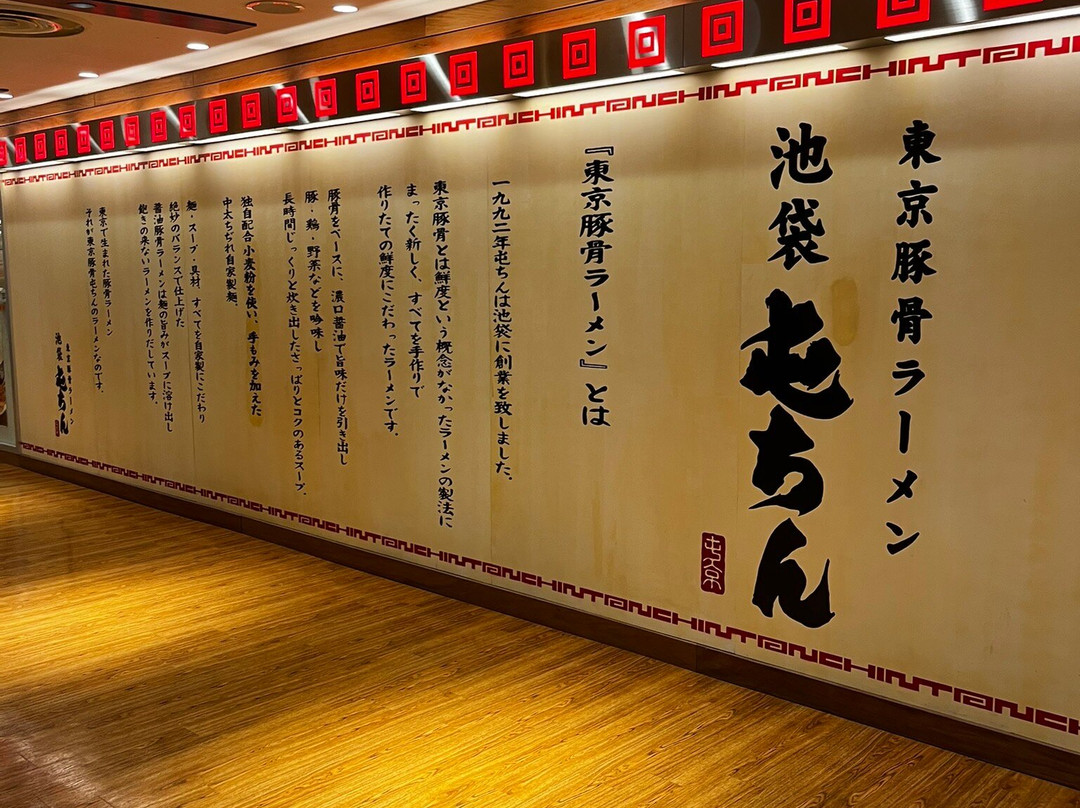 東京豚骨ラーメン
池袋 屯ちん
『東京豚骨ラーメン』とは
一九九二年屯ちんは池袋に創業を致しました。
東京豚骨とは鮮度という概念がなかったラーメンの製法に
まったく新しく、すべてを手作りで
作りたての鮮度にこだわったラーメンです。
豚骨をベースに、濃口醤油で旨味だけを引き出し
豚・鶏・野菜などを吟味し
長時間じっくりと炊き出したさっぱりとコクのあるスープ。
独自配合小麦粉を使い、手もみを加えた
中太ちぢれ自家製麺。
麺・スープ・具材、すべてを自家製にこだわり
絶妙のバランスで仕上げた
醤油豚骨ラーメンは麺の旨みがスープに溶け出し
飽きの来ないラーメンを作りだしています。
東京で生まれた豚骨ラーメン
それが東京豚骨屯ちんのラーメンなのです。
東京豚骨ラーメン
池袋 屯ちん